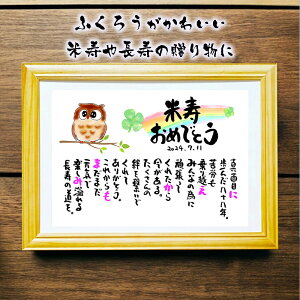 ふくろうがかわいい
米寿や長寿の贈り物に
米寿
おめでとう
2024.7.11
歩んだ八十八年。
苦労も
乗り越え
みんなの為に
頑張って
くれたから
今がある。
たくさんの
絆を繋いで
くれて
ありがとう。
これからも
まだまだ
元気で
楽しみ溢れる
長寿の道を。